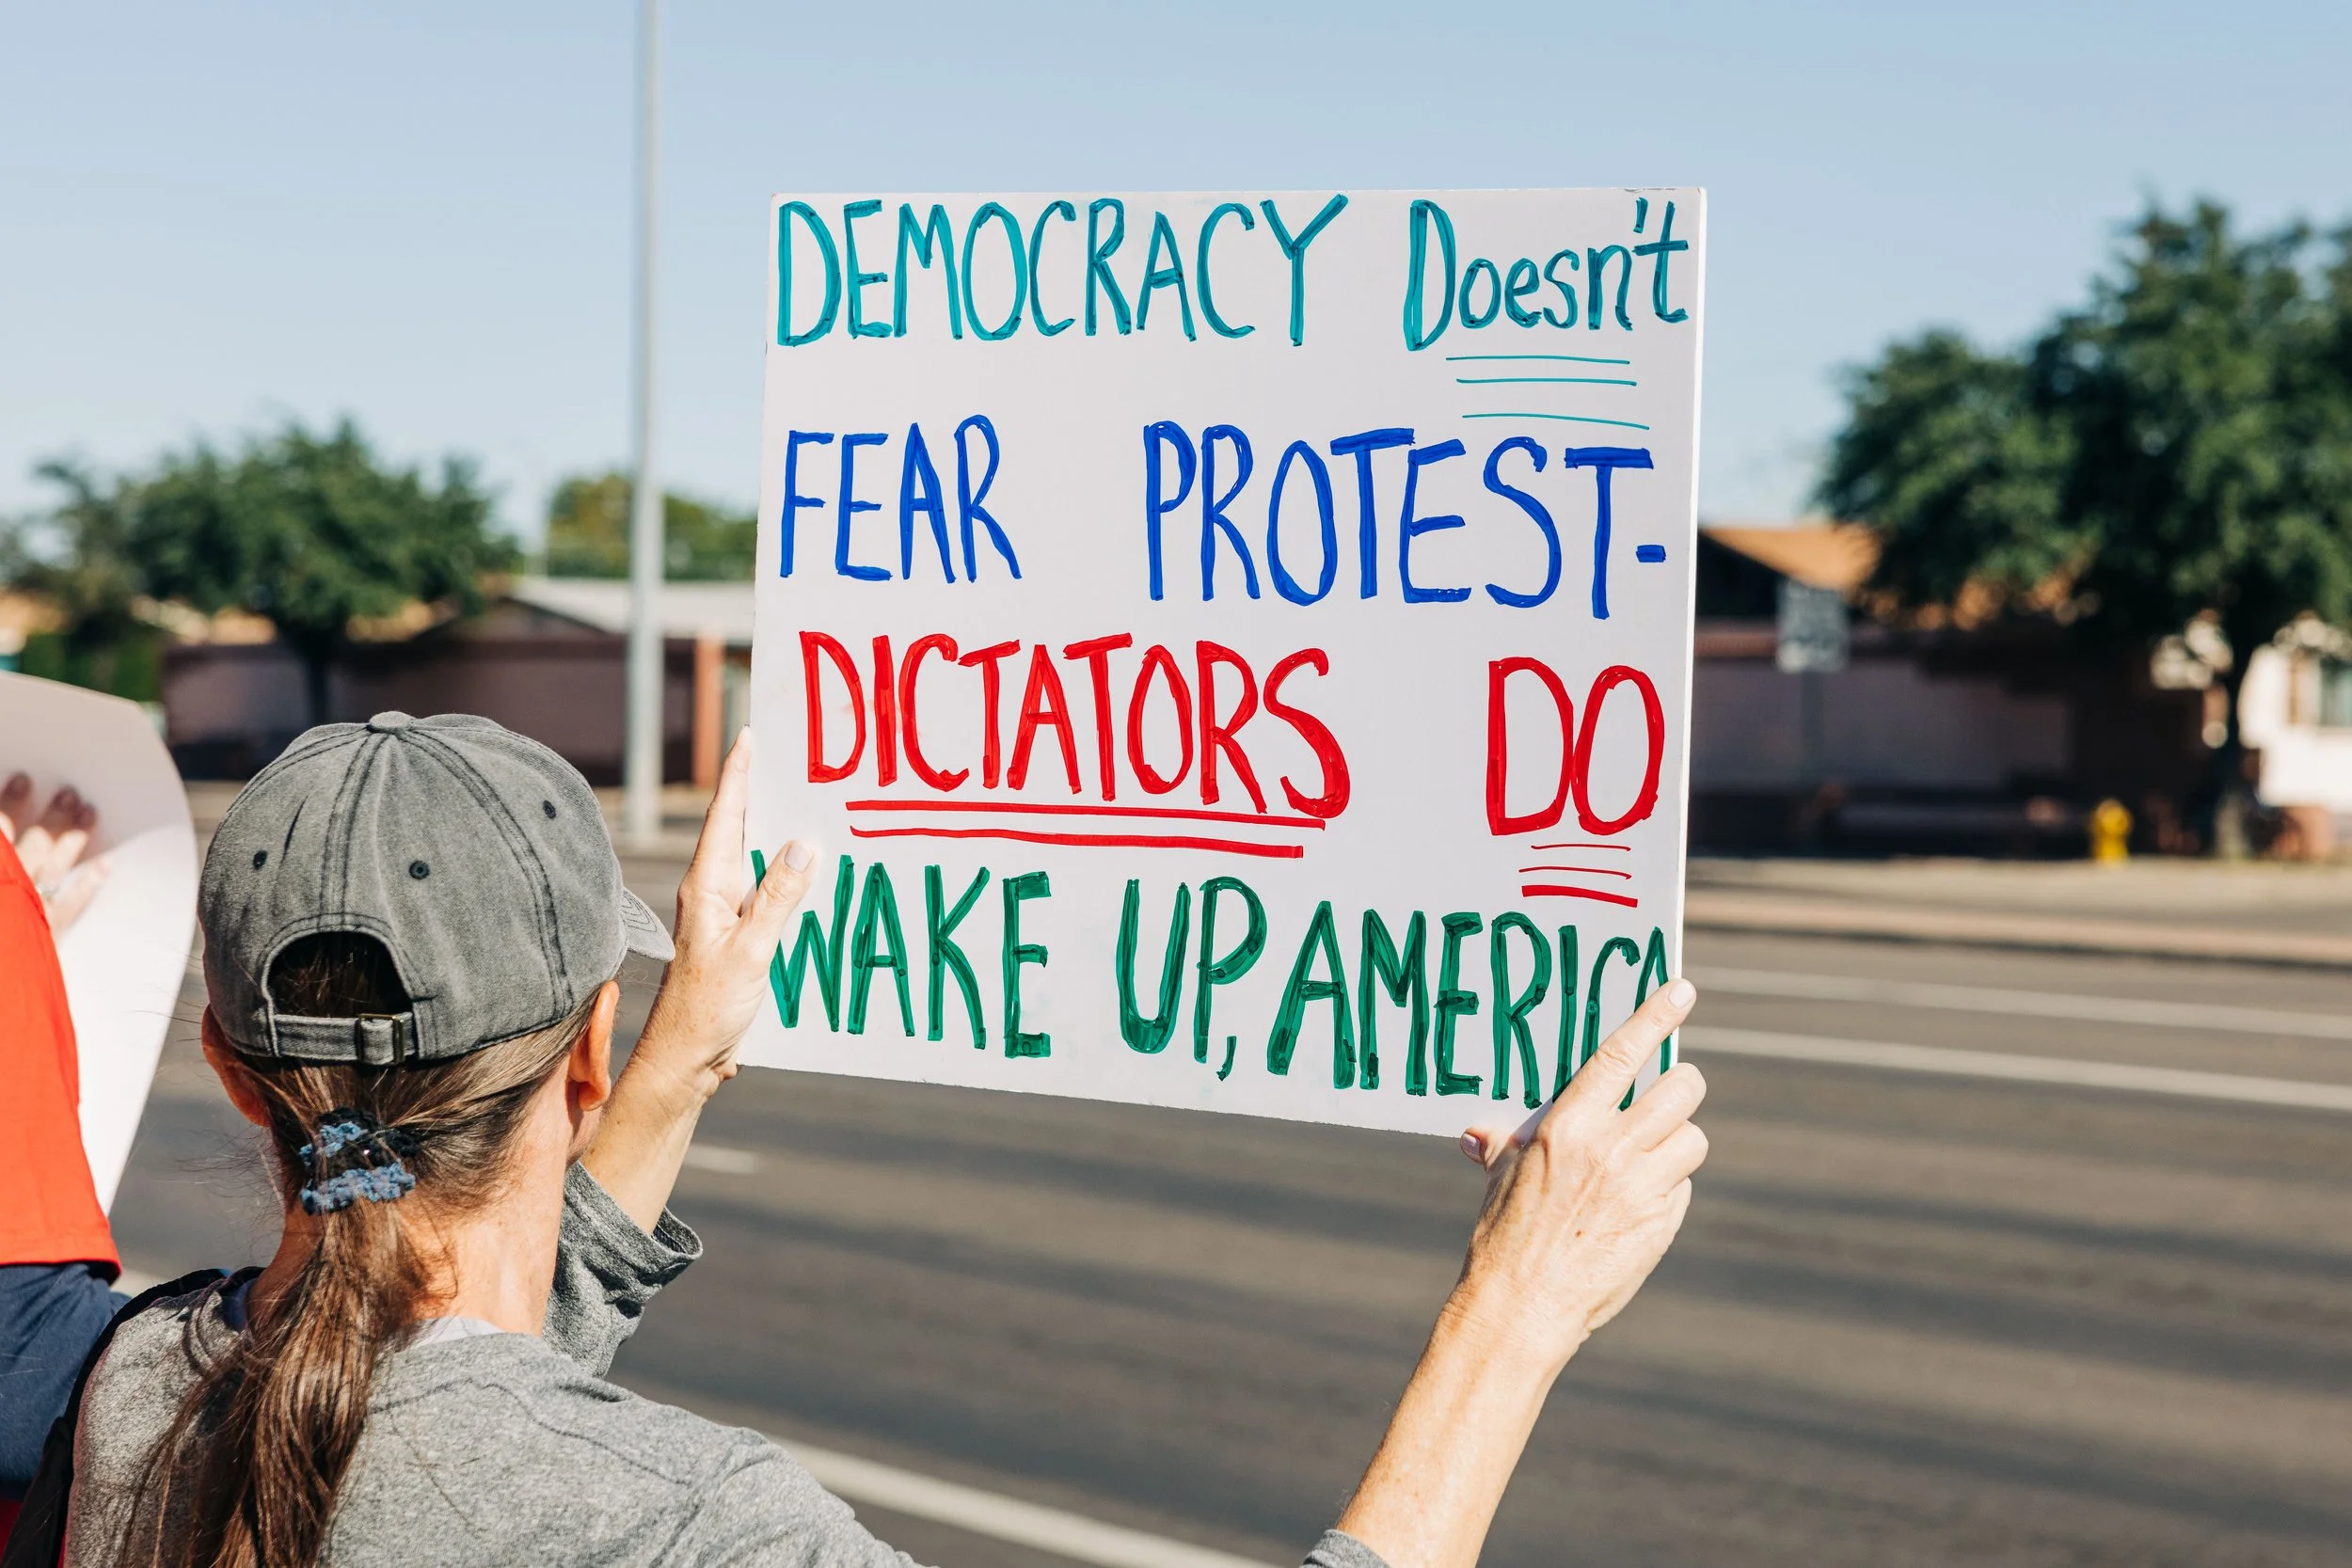 DEMOCRACY Doesn't
FEAR PROTEST-
DICTATORS DO
WAKE UP, AMERICA